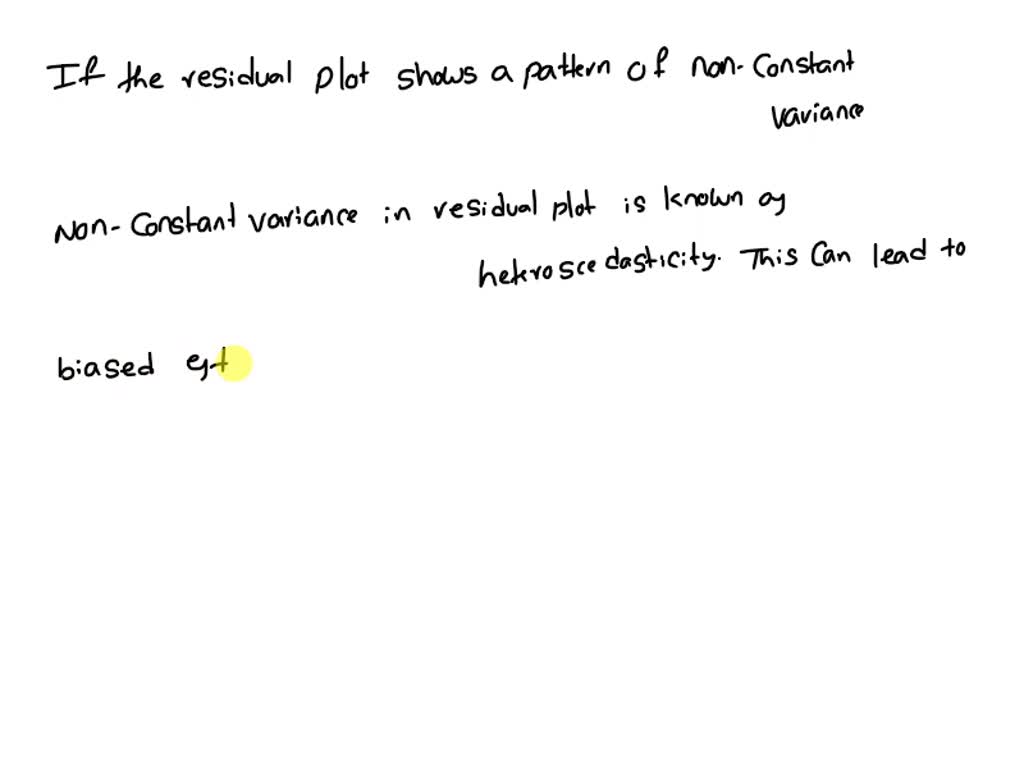 If the residual plot shows a pattern of non-constant
variance
Non-Constant variance in residual plot is known as
hetroscedasticity. This can lead to
biased est